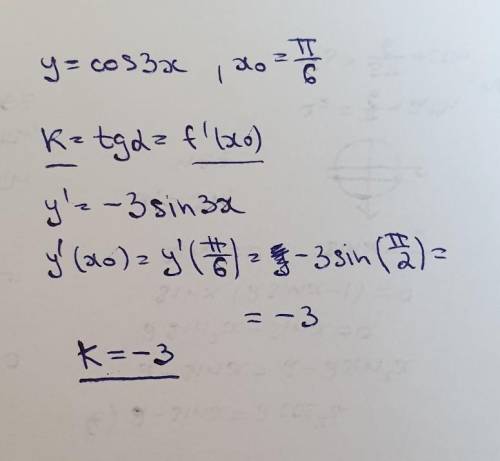 y = cos3x , x₀ = π/6
K = tgα = f'(x₀)
y' = -3sin3x
y'(x₀) = y'(π/6) = -3sin(π/2) =
= -3
K = -3